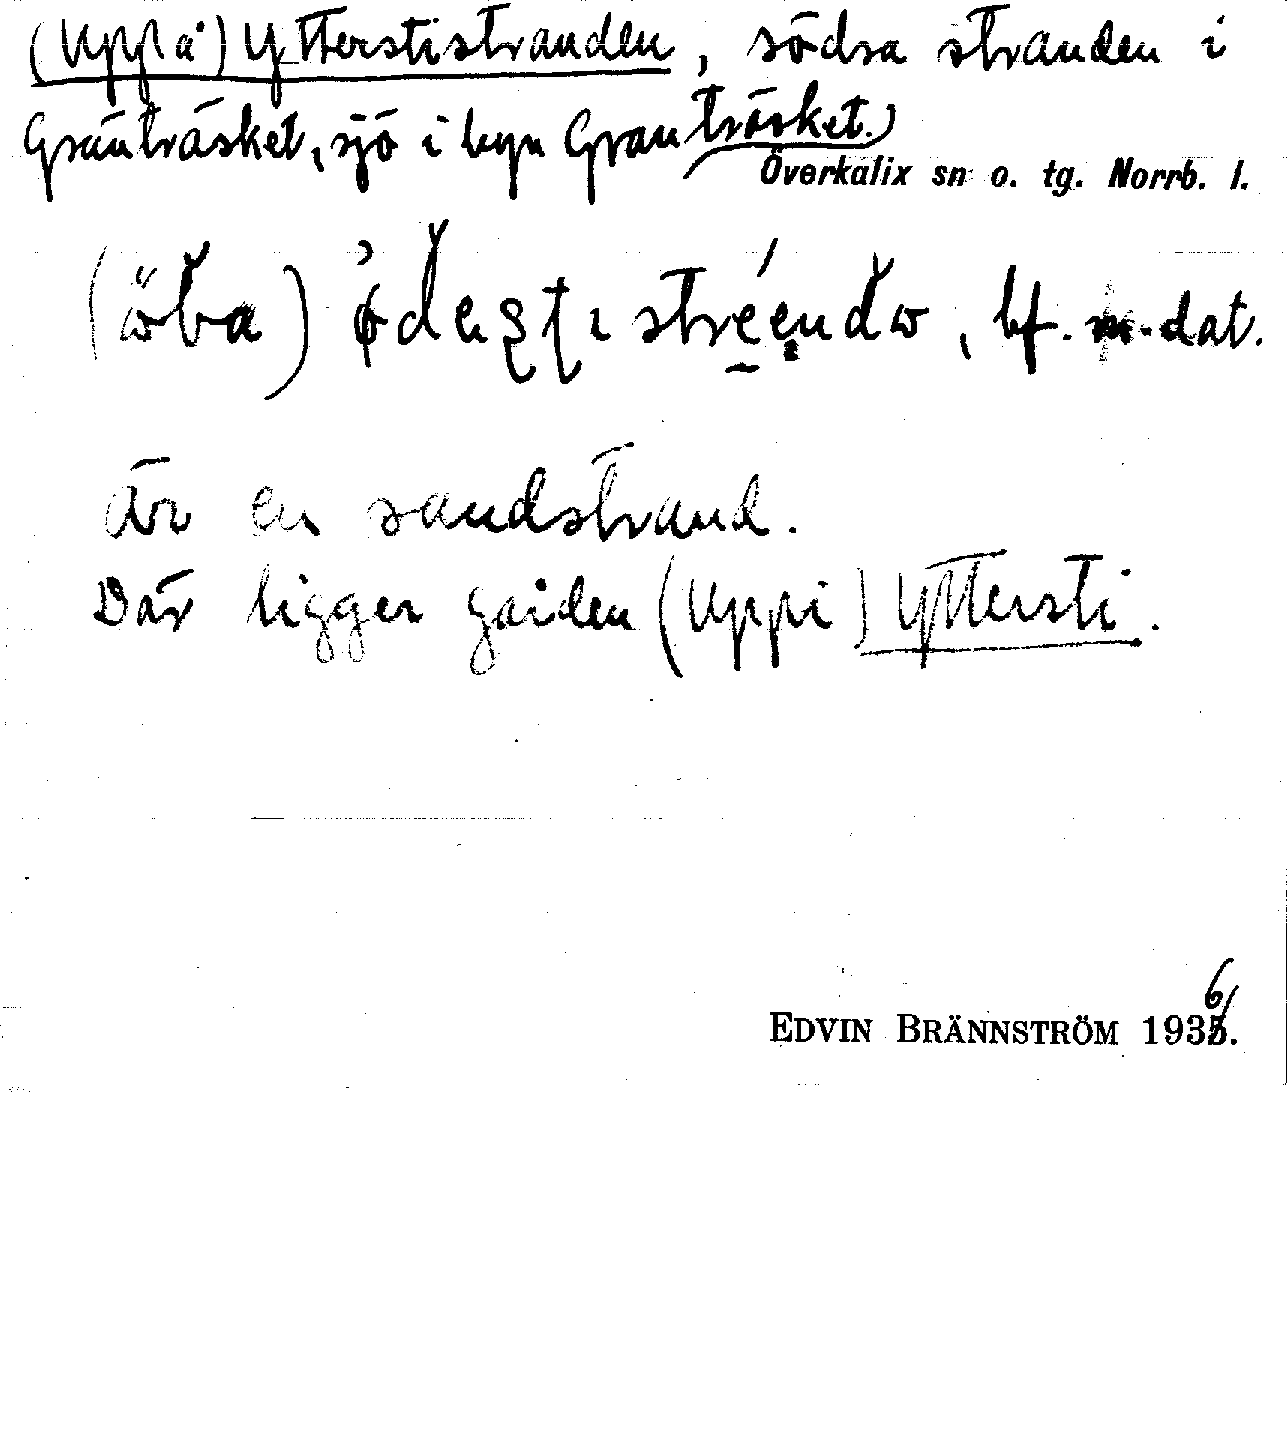 (Uppå) Ytterstistranden, södra stranden i
Granträsket, sjö i byn Granträsket.)
Överkalix sn o. tg. Norrb. l.
bf. dat.
är en sandstrand.
Där ligger gården (Uppi) Yttersti.
EDVIN BRÄNNSTRÖM 1936.